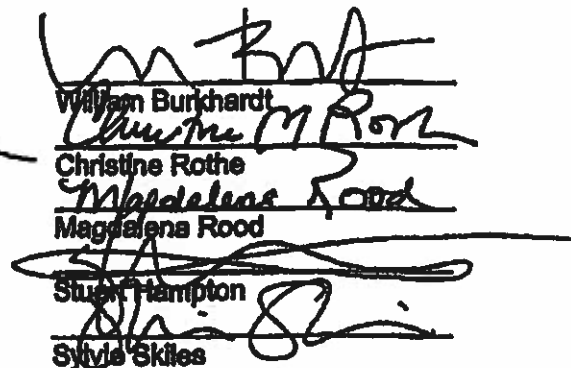 William Burkhardt
Christine M Rothe
Christine Rothe
Magdalena Rood
Magdalena Rood
Stuart Hampton
Sylvie Skiles